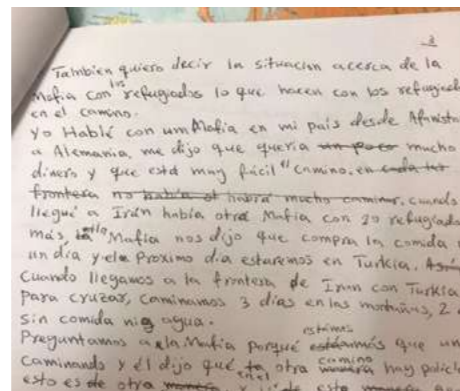 3
También quiero decir la situacion acerca de la
Mafia con los refugiados lo que hacen con los refugiad
en el camino.
Yo Hablé con um Mafia en mi país desde Afanist
a Alemania, me dijo que queria un poco mucho
dinero y que está muy fácil el camino. en cada
frontera no había habrá mucho caminar, cuando
llegué a Irán había otra Mafia con 20 refugiado
más la Mafia nos dijo que compra la comida
un día y el Proximo dia estaremos en Turkia.
Cuando llegamos a la frontera de Iran con Turkia
Para cruzar, caminamos 3 dias en las montañas, 2
sin comida ni agua.
Preguntamos a la Mafia porqué estámos más que un
Caminando y él dijo qué, otra camino hay polici
esto es de otra